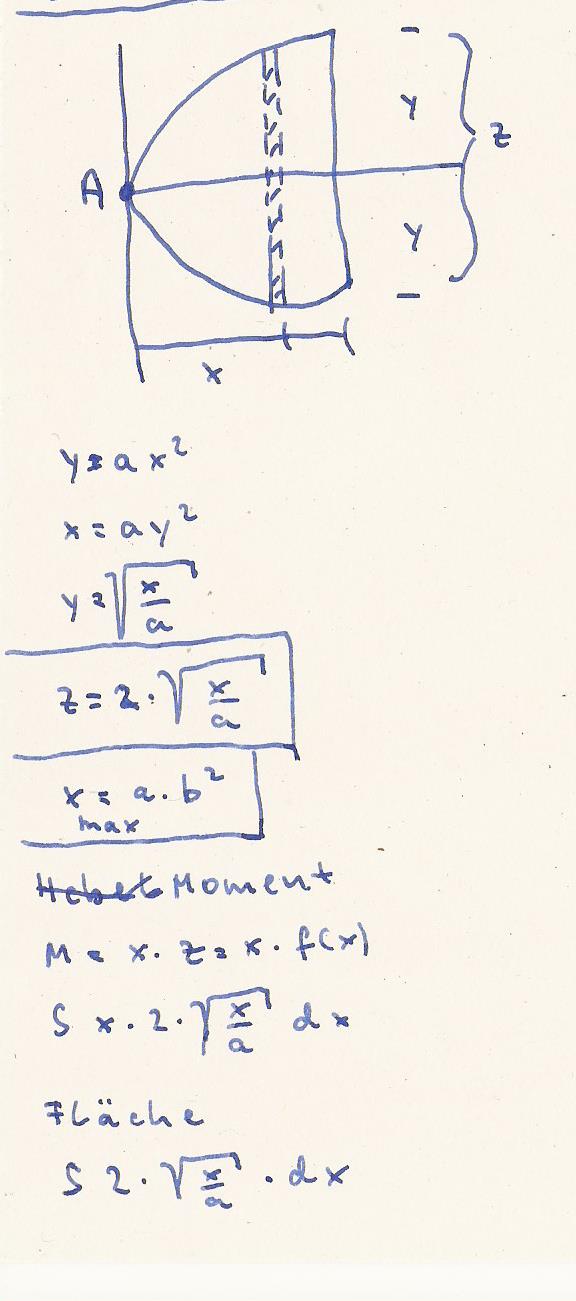 y
z
A
y
x
y = a x²
x = a y²
y = √(x/a)
z = 2 · √(x/a)
x = a · b²
max
Hebel Moment
M = x · z = x · f(x)
S x · 2 · √(x/a) dx
Fläche
S 2 · √(x/a) · dx